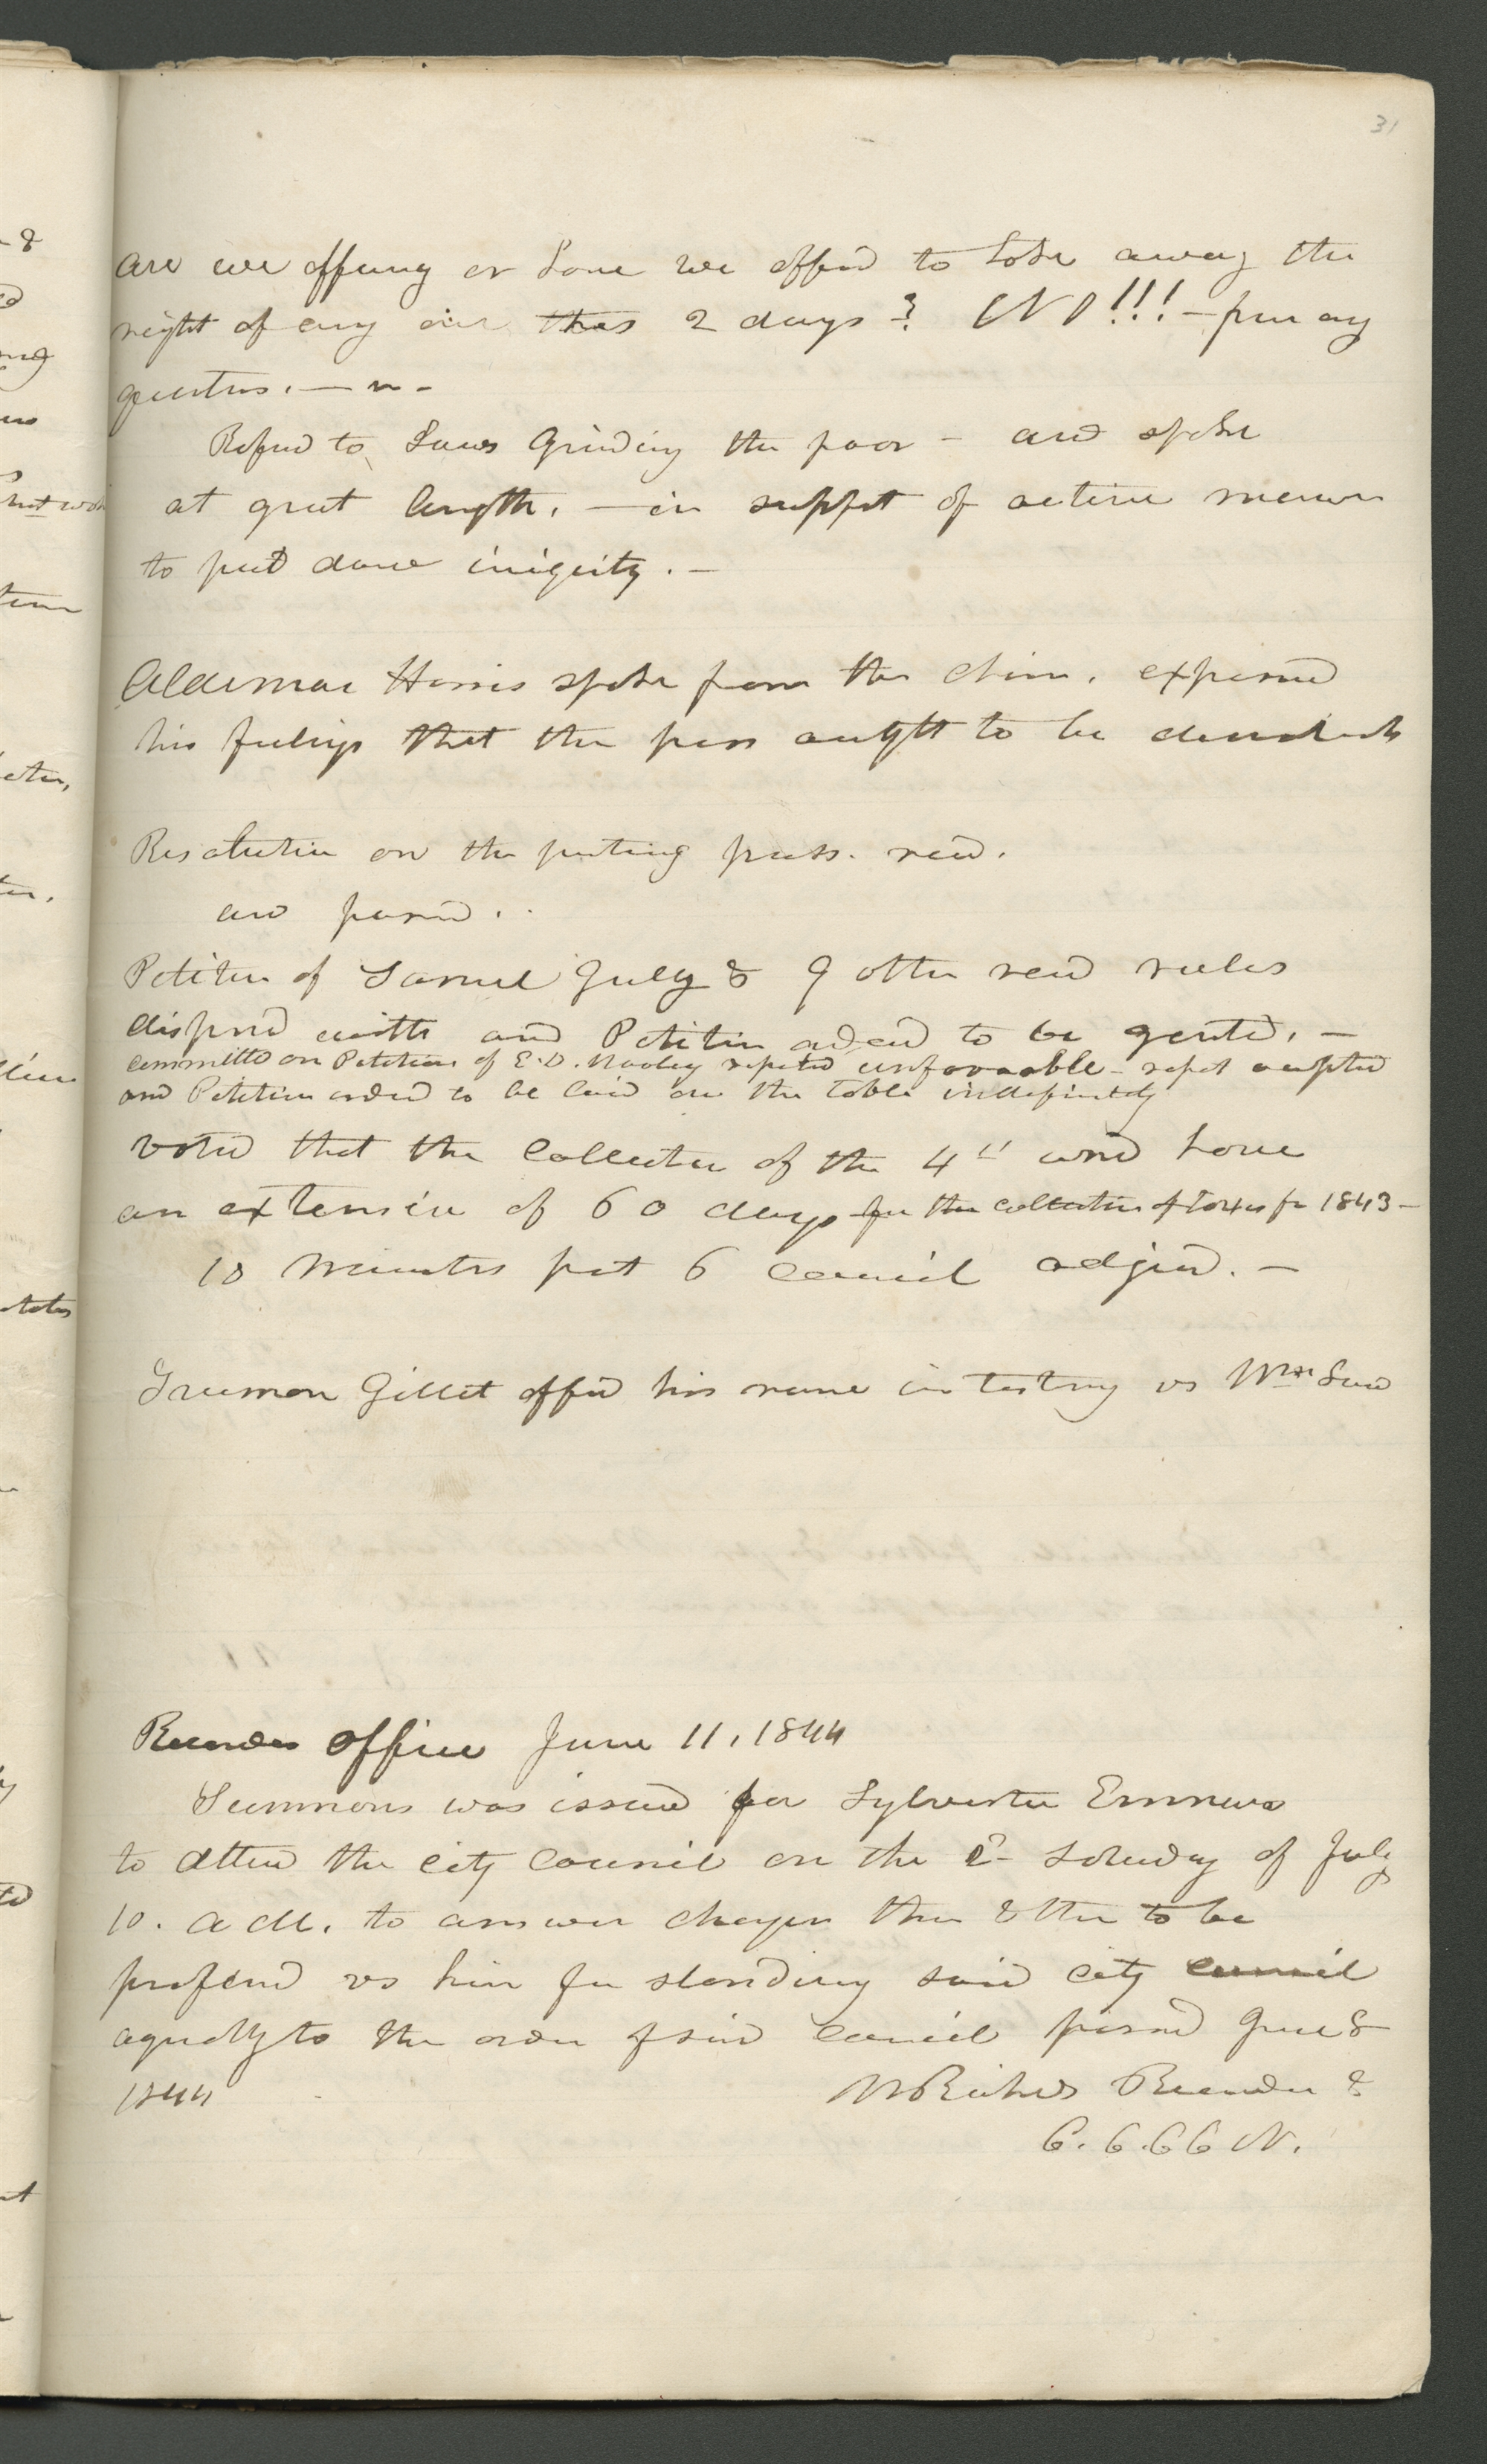 31
are we offering or have we offerd to take away the
right of any our this 2 days? NO!!! — from any
quarters. —
Referd to Laws Grinding the poor — and spoke
at great length. — in support of active measures
to put down iniquity. —
Alderman Harris spoke from the chair. expressed
his feelings that the press ought to be demolished
Resolution on the printing press. read.
and passed.
Petition of Samuel Gully & 9 others read rules
dispensed with and Petition ordered to be granted. —
committee on Petition of E. D. Wooley reported unfavorable — report accepted
and Petition ordered to be laid on the table indefinitely
voted that the Collector of the 4th ward have
an extension of 60 days for the collection of taxes for 1843 —
10 minutes past 6 council adjourned. —
Truman Gillet offerd his name in testimony vs Wm Law
Recorders office June 11, 1844
Summons was issued for Sylvester Emmons
to attend the city Council on the 2d Saturday of July
10. A M. to answer charges then & there to be
prefered vs him for slandering said city council
agreeably to the order of said council passed June 8
1844
W Richards Recorder &
C. C. C C N.